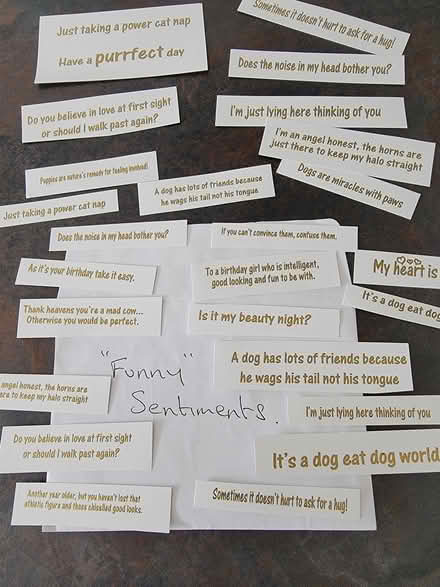 Just taking a power cat nap
Have a purrfect day
Sometimes it doesn't hurt to ask for a hug!
Does the noise in my head bother you?
Do you believe in love at first sight
or should I walk past again?
I'm just lying here thinking of you
I'm an angel honest, the horns are
just there to keep my halo straight
Puppies are nature's remedy for feeling unloved!
A dog has lots of friends because
he wags his tail not his tongue
Dogs are miracles with paws
Just taking a power cat nap
Does the noise in my head bother you?
If you can't convince them, confuse them.
As it's your birthday take it easy.
To a birthday girl who is intelligent,
good looking and fun to be with.
My heart is
It's a dog eat dog
Thank heavens you're a mad cow...
Otherwise you would be perfect.
Is it my beauty night?
A dog has lots of friends because
he wags his tail not his tongue
"Funny"
Sentiments.
angel honest, the horns are
ere to keep my halo straight
I'm just lying here thinking of you
Do you believe in love at first sight
or should I walk past again?
It's a dog eat dog world
Another year older, but you haven't lost that
athletic figure and those chiselled good looks.
Sometimes it doesn't hurt to ask for a hug!